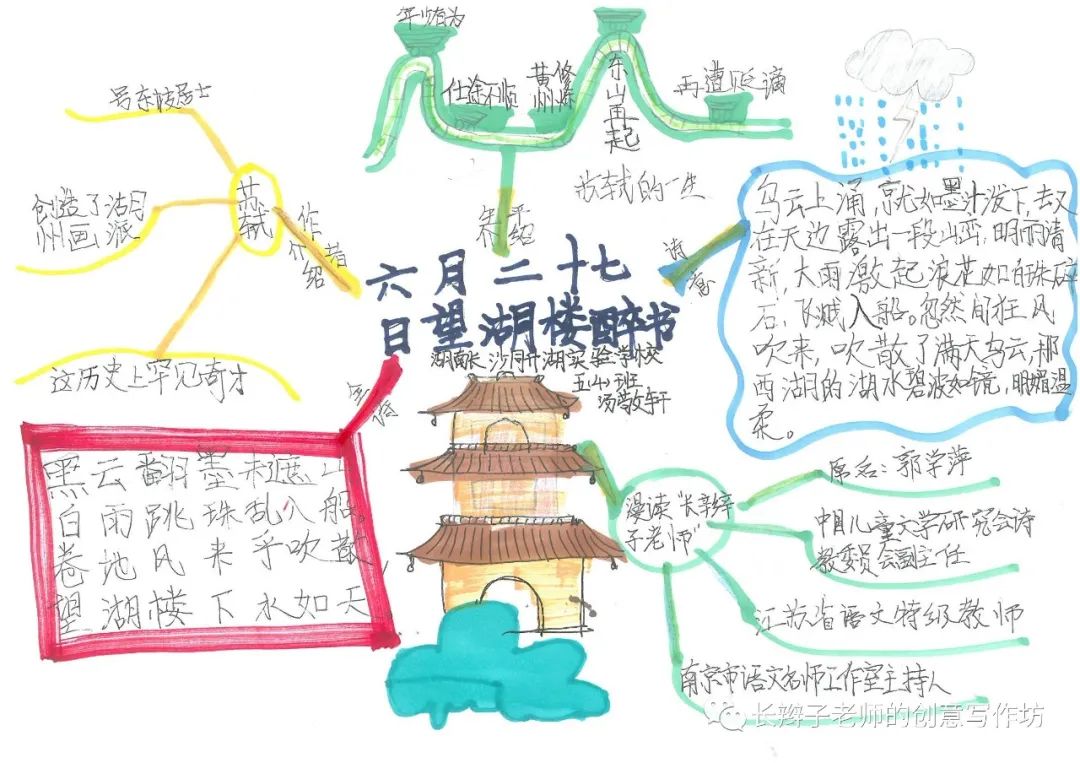 六月二十七
日望湖楼醉书
湖南长沙同升湖实验学校
五山班
作者
介绍
苏轼
号东坡居士
创造了湖
州画派
这历史上罕见奇才
生平
介绍
年少有为
仕途不顺
黄州修炼
东山再起
再遭贬谪
苏轼的一生
诗意
乌云上涌,就如墨汁泼下,却又
在天边露出一段山峦,明丽清
新,大雨激起浪花如白珠碎
石,飞溅入船。忽然间狂风
吹来,吹散了满天乌云,那
西湖的湖水碧波如镜,明媚温
柔。
全诗
黑云翻墨未遮山
白雨跳珠乱入船。
卷地风来乎吹散,
望湖楼下水如天
漫读“长辫
子老师”
原名:郭学萍
中国儿童文学研究会诗
教委员会副主任
江苏省语文特级教师
南京市语文名师工作室主持人
长辫子老师的创意写作坊